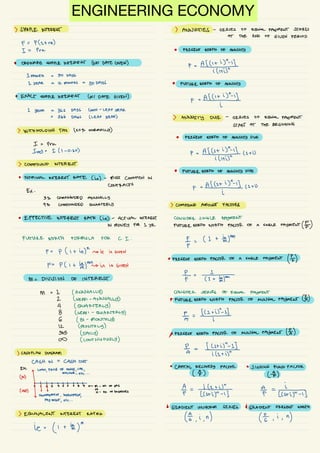 ENGINEERING ECONOMY
> SIMPLE INTEREST
F = P(1+rn)
I = Prn
• ORDINARY SIMPLE INTEREST (NO DATE GIVEN)
1 MONTH = 30 DAYS
1 YEAR = 12 MONTHS = 360 DAYS
• EXACT SIMPLE INTEREST (W/ DATE GIVEN)
1 YEAR = 365 DAYS (NON-LEAP YEAR)
= 366 DAYS (LEAP YEAR)
> WITHHOLDING TAX (20% NORMALLY)
I = Prn
> COMPOUND INTEREST
• NOMINAL INTEREST RATE - RATE COMMON IN
CONTRACTS
Ex.
3% COMPOUNDED ANNUALLY
9% COMPOUNDED QUARTERLY
• EFFECTIVE INTEREST RATE (ie) - ACTUAL INTEREST
IN MONEY FOR 1 YR.
FUTURE WORTH FORMULA FOR C.I.
m = DIVISION OF INTEREST
m = 1 (ANNUALLY)
2 (SEMI-ANNUALLY)
4 (QUARTERLY)
8 (SEMI-QUARTERLY)
6 (BI-MONTHLY)
12 (MONTHLY)
365 (DAILY)
∞ (CONTINUOUSLY)
> CASHFLOW DIAGRAM
CASH IN = CASH OUT
> EQUIVALENT INTEREST RATES
> ANNUITIES - SERIES OF EQUAL PAYMENT STARTS
AT THE END OF GIVEN PERIODS
• PRESENT WORTH OF ANNUITY
P = A[(1+i)ⁿ-1]
i(1+i)ⁿ
• FUTURE WORTH OF ANNUITY
F = A[(1+i)ⁿ-1]
i
> ANNUITY DUE - SERIES OF EQUAL PAYMENT
START AT THE BEGINNING
• PRESENT WORTH OF ANNUITY DUE
P = A[(1+i)ⁿ-1] (1+i)
i(1+i)ⁿ
• FUTURE WORTH OF ANNUITY DUE
F = A[(1+i)ⁿ-1] (1+i)
i
> COMPOUND AMOUNT FACTORS
CONSIDER SINGLE PAYMENT
FUTURE WORTH FACTOR OF A SINGLE PAYMENT (F/P)
• PRESENT WORTH FACTOR OF A SINGLE PAYMENT (P/F)
CONSIDER SERIES OF EQUAL PAYMENT
• FUTURE WORTH FACTOR OF ANNUAL PAYMENT (F/A)
F/A = [(1+i)ⁿ-1]
i
• PRESENT WORTH FACTOR OF ANNUAL PAYMENT (P/A)
P/A = [(1+i)ⁿ-1]
i(1+i)ⁿ
• CAPITAL RECOVERY FACTOR (A/P) • SINKING FUND FACTOR (A/F)
A/P = i(1+i)ⁿ / [(1+i)ⁿ-1] A/F = i / [(1+i)ⁿ-1]
GRADIENT UNIFORM SERIES GRADIENT PRESENT WORTH
(A/G, i, n) (P/G, i, n)